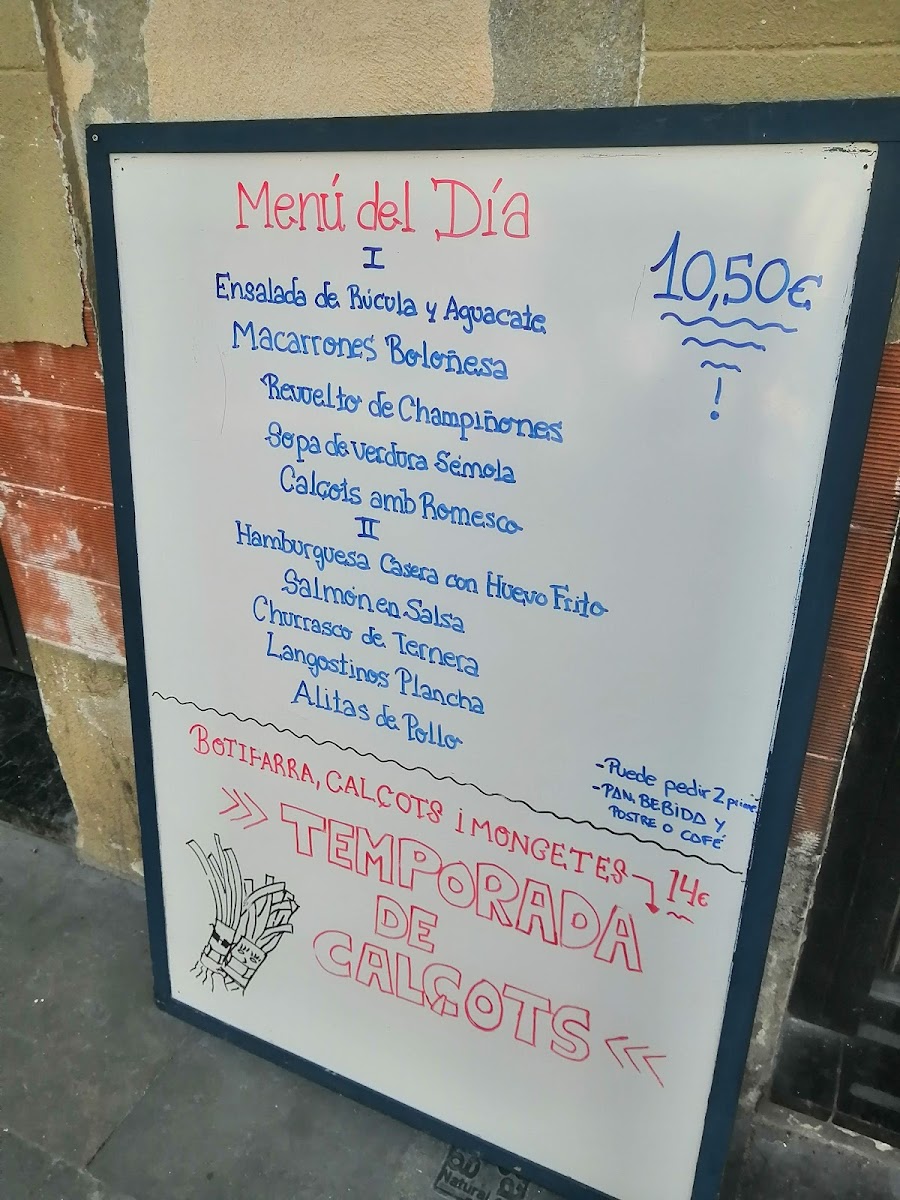 Menú del Día
I
10,50€
!
Ensalada de Rúcula y Aguacate
Macarrones Boloñesa
Revuelto de Champiñones
Sopa de verdura Sémola
Calçots amb Romesco
II
Hamburguesa Casera con Huevo Frito
Salmón en Salsa
Churrasco de Ternera
Langostinos Plancha
Alitas de Pollo
-Puede pedir 2
-PAN, BEBIDA Y
POSTRE O CAFÉ
BOTIFARRA, CALÇOTS i MONGETES 14€
>>> TEMPORADA
DE
CALÇOTS <<<
Natural